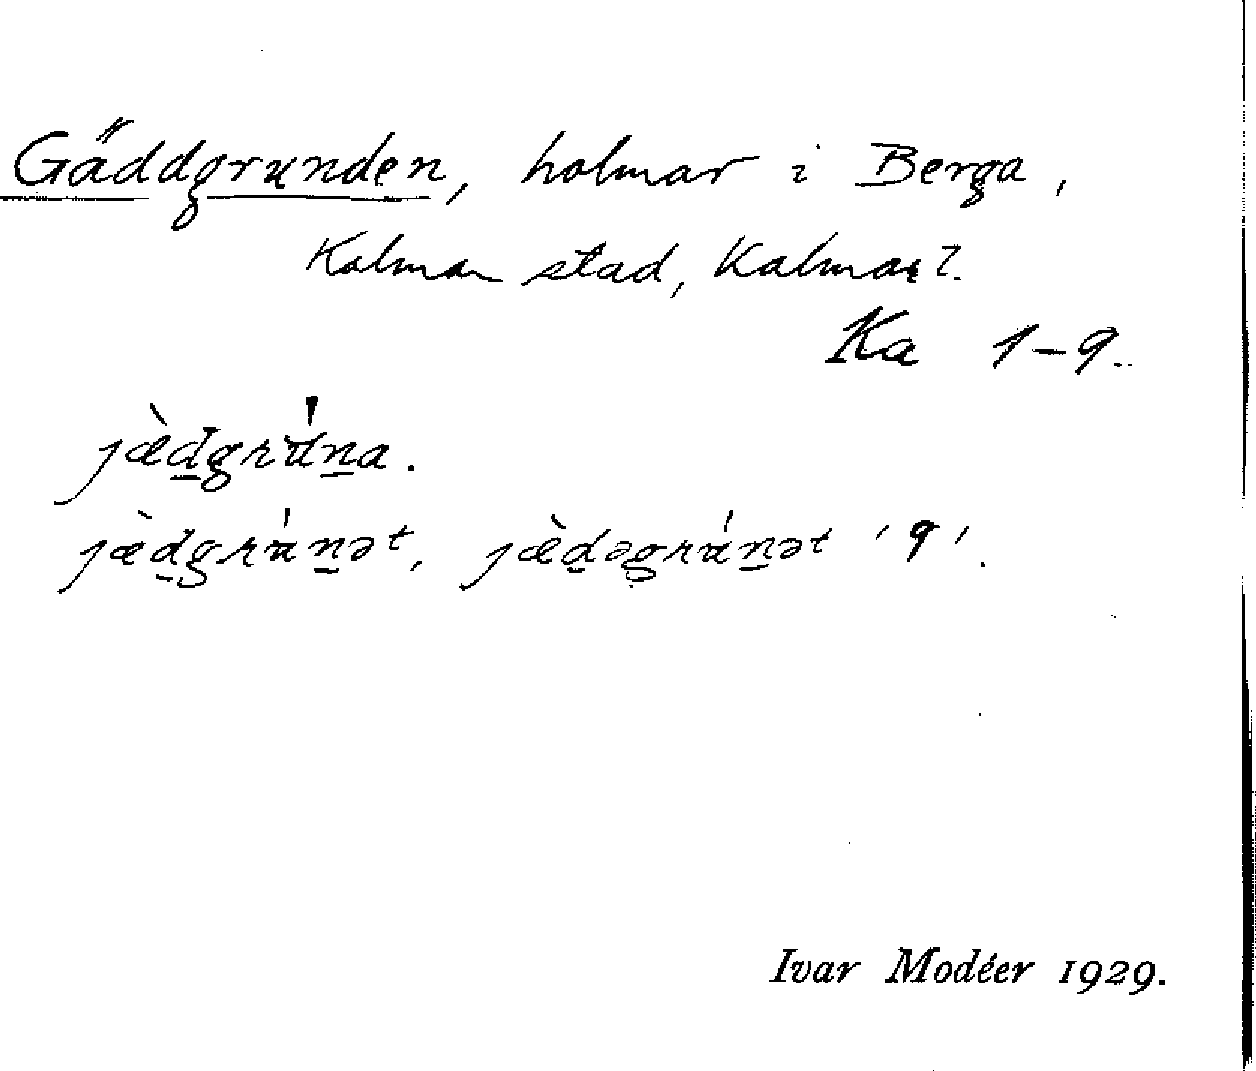 Gäddgrunden, holmar i Berga,
Kalmar stad, Kalmar l.
Ka 1-9.
jæ̀d̲grúṉa.
jæ̀d̲grúṉət, jæ̀d̲əgrúṉət '9'.
Ivar Modéer 1929.